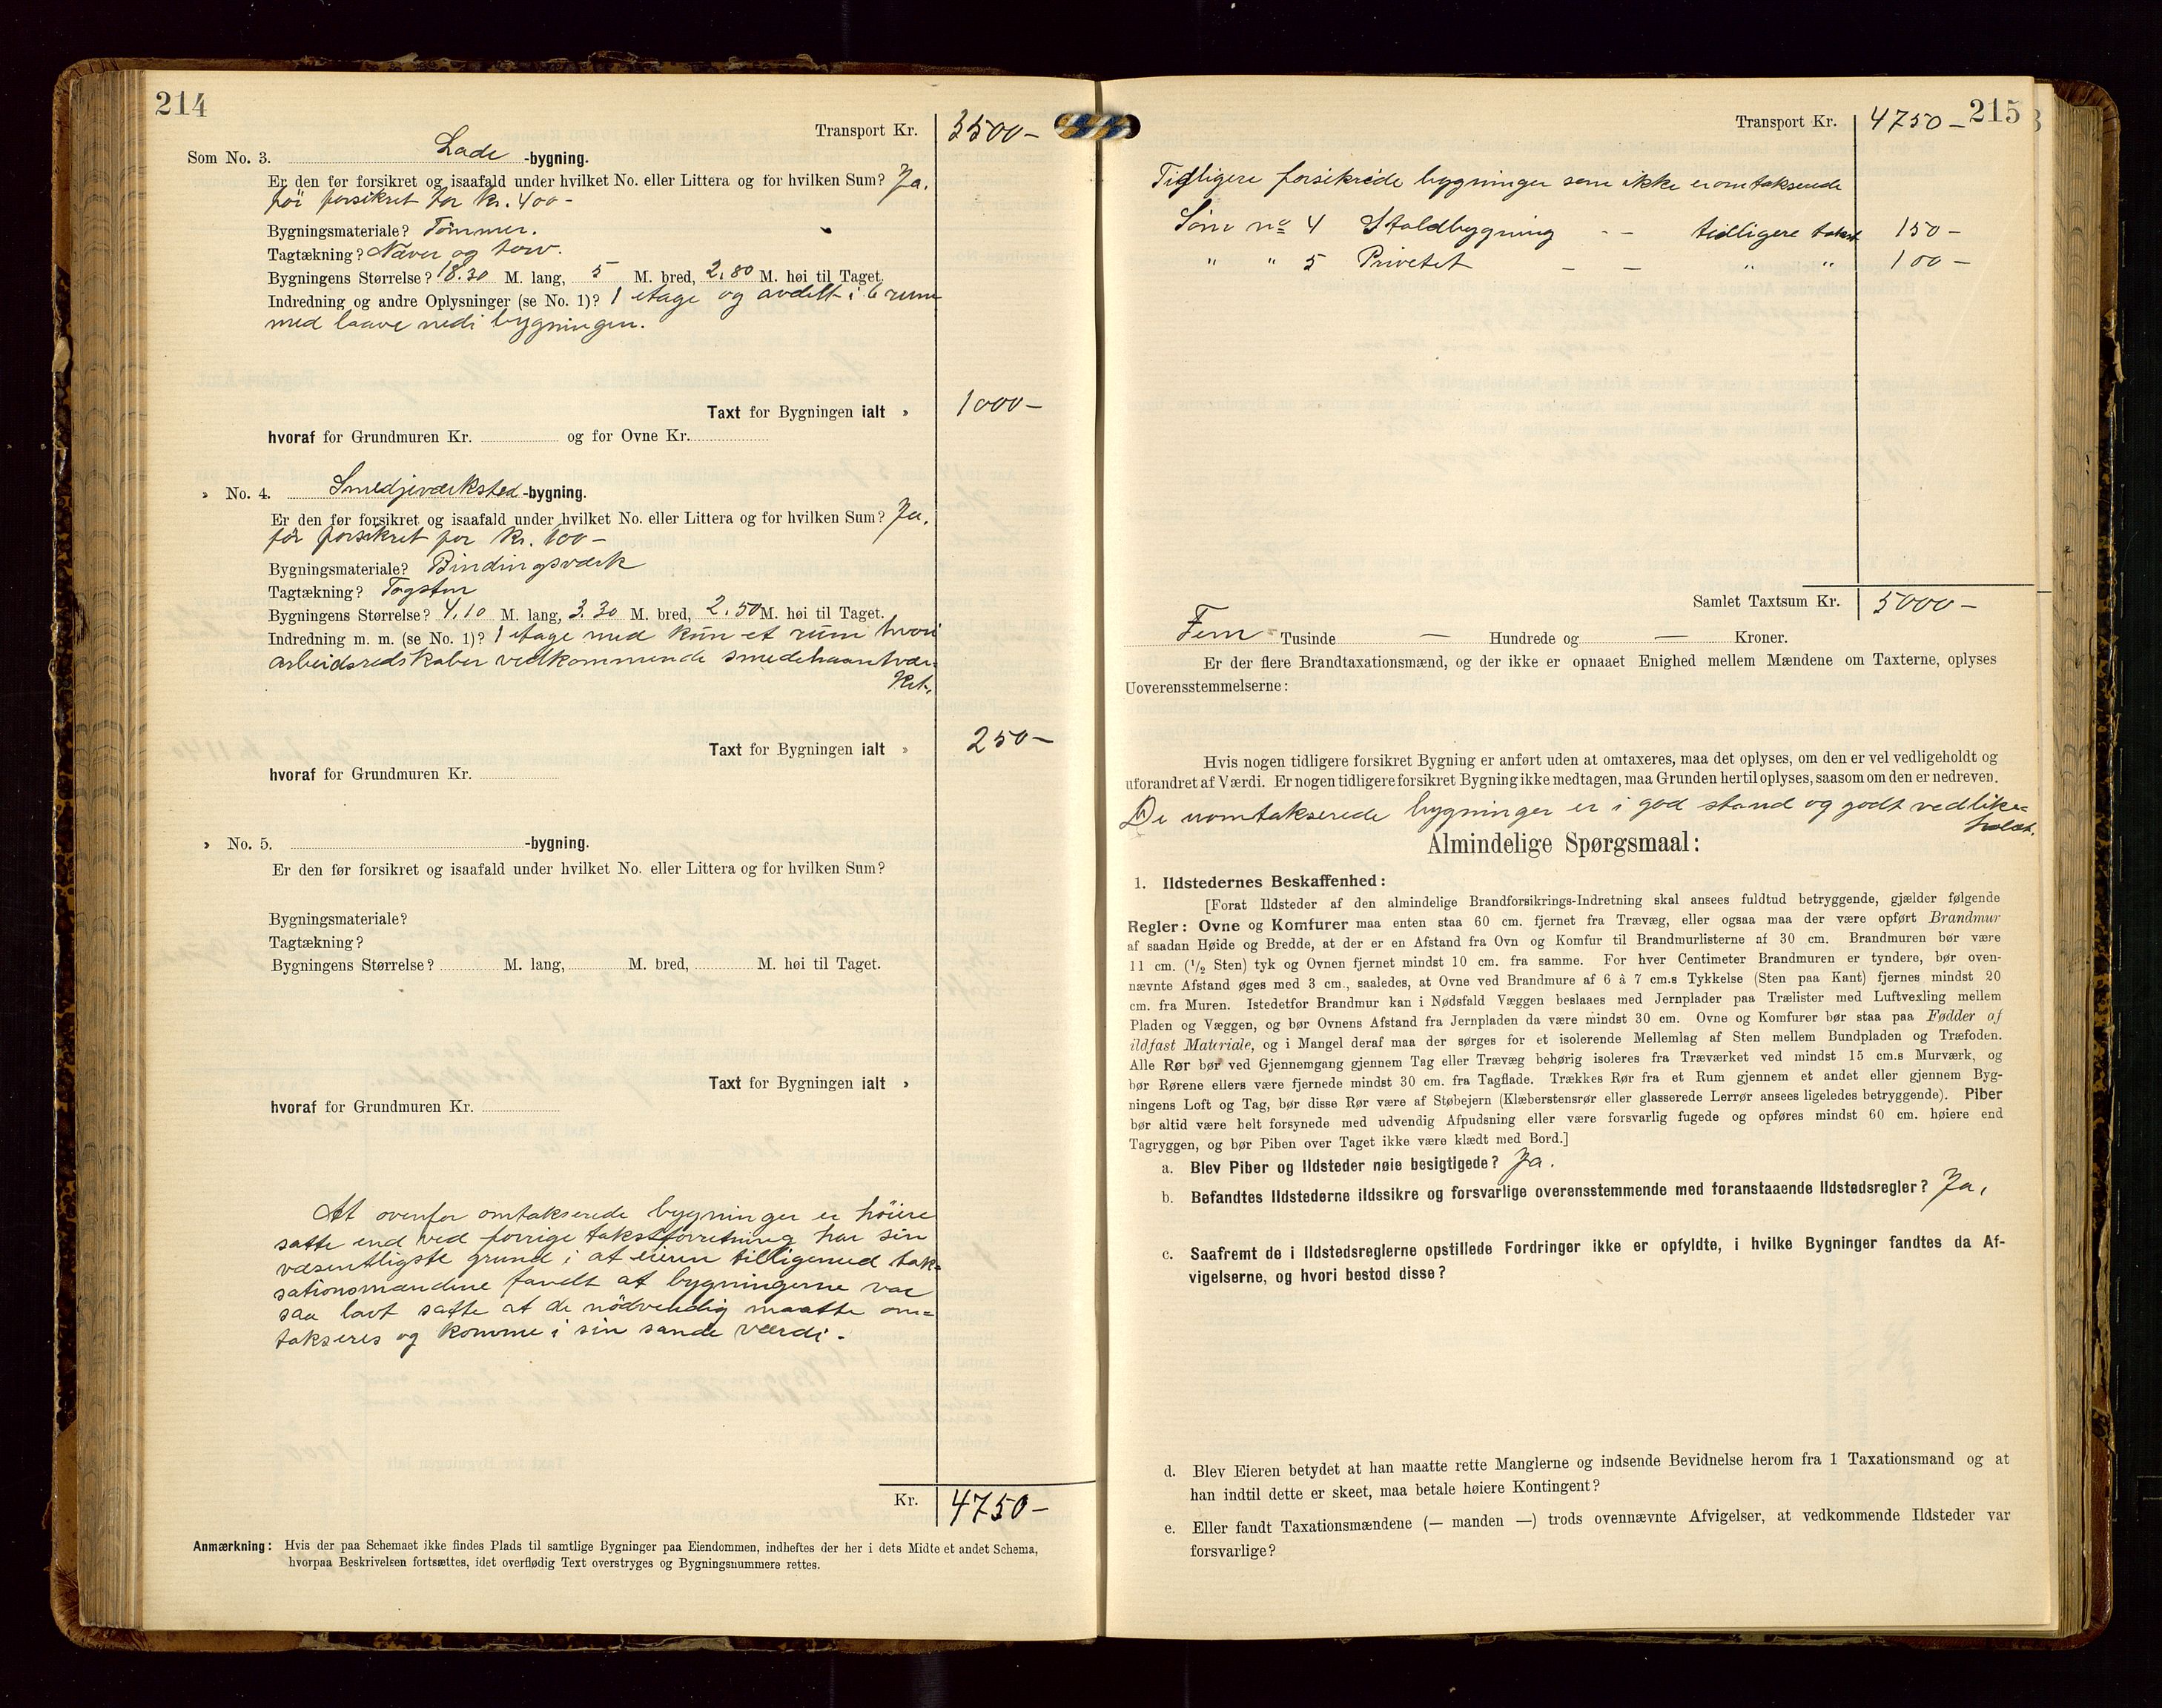 214
Transport Kr. 3500-
Som No. 3. Lade -bygning.
Er den før forsikret og isaafald under hvilket No. eller Littera og for hvilken Sum? Ja.
för forsikret for kr. 400-
Bygningsmateriale? Tömmer.
Tagtækning? Næver og torv.
Bygningens Størrelse? 18.30 M. lang, 5 M. bred, 2.80 M. høi til Taget.
Indredning og andre Oplysninger (se No. 1)? 1 etage og avdelt i 6 rum
med laave nedi bygningen.
Taxt for Bygningen ialt » 1000-
hvoraf for Grundmuren Kr. og for Ovne Kr.
» No. 4. Smedjeværksted -bygning.
Er den før forsikret og isaafald under hvilket No. eller Littera og for hvilken Sum? Ja.
för forsikret for kr. 100-
Bygningsmateriale? Bindingsværk
Tagtækning? Tagsten
Bygningens Størrelse? 4.10 M. lang, 3.30 M. bred, 2.50 M. høi til Taget.
Indredning m. m. (se No. 1)? 1 etage med kun et rum hvori
arbeidsredskaber vedkommende smedehaantvær-
ket.
Taxt for Bygningen ialt » 250-
hvoraf for Grundmuren Kr.
» No. 5. -bygning.
Er den før forsikret og isaafald under hvilket No. eller Littera og for hvilken Sum?
Bygningsmateriale?
Tagtækning?
Bygningens Størrelse? M. lang, M. bred, M. høi til Taget.
Taxt for Bygningen ialt »
hvoraf for Grundmuren Kr.
At ovenfor omtakserede bygninger er höiere
satte end ved forrige takstforretning har sin
væsentligste grund i at eieren tilligemed tak-
sationsmændene fandt at bygningerne var
saa lavt satte at de nödvendig maatte om-
takseres og komme i sin sande værdi.
Kr. 4750-
Anmærkning: Hvis der paa Schemaet ikke findes Plads til samtlige Bygninger paa Eiendommen, indheftes der her i dets Midte et andet Schema,
hvorpaa Beskrivelsen fortsættes, idet overflødig Text overstryges og Bygningsnummere rettes.
215
Transport Kr. 4750-
Tidligere forsikrede bygninger som ikke er omtakserede
Som no 4 Staldbygning - - tidligere takst 150-
" " 5 Privetet - - " " 100-
Samlet Taxtsum Kr. 5000-
Fem Tusinde — Hundrede og — Kroner.
Er der flere Brandtaxationsmænd, og der ikke er opnaaet Enighed mellem Mændene om Taxterne, oplyses
Uoverensstemmelserne:
Hvis nogen tidligere forsikret Bygning er anført uden at omtaxeres, maa det oplyses, om den er vel vedligeholdt og
uforandret af Værdi. Er nogen tidligere forsikret Bygning ikke medtagen, maa Grunden hertil oplyses, saasom om den er nedreven.
De uomtakserede bygninger er i god stand og godt vedlike-
holdt.
Almindelige Spørgsmaal:
1. Ildstedernes Beskaffenhed:
[Forat Ildsteder af den almindelige Brandforsikrings-Indretning skal ansees fuldtud betryggende, gjælder følgende
Regler: Ovne og Komfurer maa enten staa 60 cm. fjernet fra Trævæg, eller ogsaa maa der være opført Brandmur
af saadan Høide og Bredde, at der er en Afstand fra Ovn og Komfur til Brandmurlisterne af 30 cm. Brandmuren bør være
11 cm. (1/2 Sten) tyk og Ovnen fjernet mindst 10 cm. fra samme. For hver Centimeter Brandmuren er tyndere, bør oven-
nævnte Afstand øges med 3 cm., saaledes, at Ovne ved Brandmure af 6 à 7 cm.s Tykkelse (Sten paa Kant) fjernes mindst 20
cm. fra Muren. Istedetfor Brandmur kan i Nødsfald Væggen beslaaes med Jernplader paa Trælister med Luftvexling mellem
Pladen og Væggen, og bør Ovnens Afstand fra Jernpladen da være mindst 30 cm. Ovne og Komfurer bør staa paa Fødder af
ildfast Materiale, og i Mangel deraf maa der sørges for et isolerende Mellemlag af Sten mellem Bundpladen og Træfoden.
Alle Rør bør ved Gjennemgang gjennem Tag eller Trævæg behørig isoleres fra Træværket ved mindst 15 cm.s Murværk, og
bør Rørene ellers være fjernede mindst 30 cm. fra Tagflade. Trækkes Rør fra et Rum gjennem et andet eller gjennem Byg-
ningens Loft og Tag, bør disse Rør være af Støbejern (Klæberstensrør eller glasserede Lerrør ansees ligeledes betryggende). Piber
bør altid være helt forsynede med udvendig Afpudsning eller være forsvarlig fugede og opføres mindst 60 cm. høiere end
Tagryggen, og bør Piben over Taget ikke være klædt med Bord.]
a. Blev Piber og Ildsteder nøie besigtigede? Ja.
b. Befandtes Ildstederne ildssikre og forsvarlige overensstemmende med foranstaaende Ildstedsregler? Ja,
c. Saafremt de i Ildstedsreglerne opstillede Fordringer ikke er opfyldte, i hvilke Bygninger fandtes da Af-
vigelserne, og hvori bestod disse?
d. Blev Eieren betydet at han maatte rette Manglerne og indsende Bevidnelse herom fra 1 Taxationsmand og at
han indtil dette er skeet, maa betale høiere Kontingent?
e. Eller fandt Taxationsmændene (— manden —) trods ovennævnte Afvigelser, at vedkommende Ildsteder var
forsvarlige?